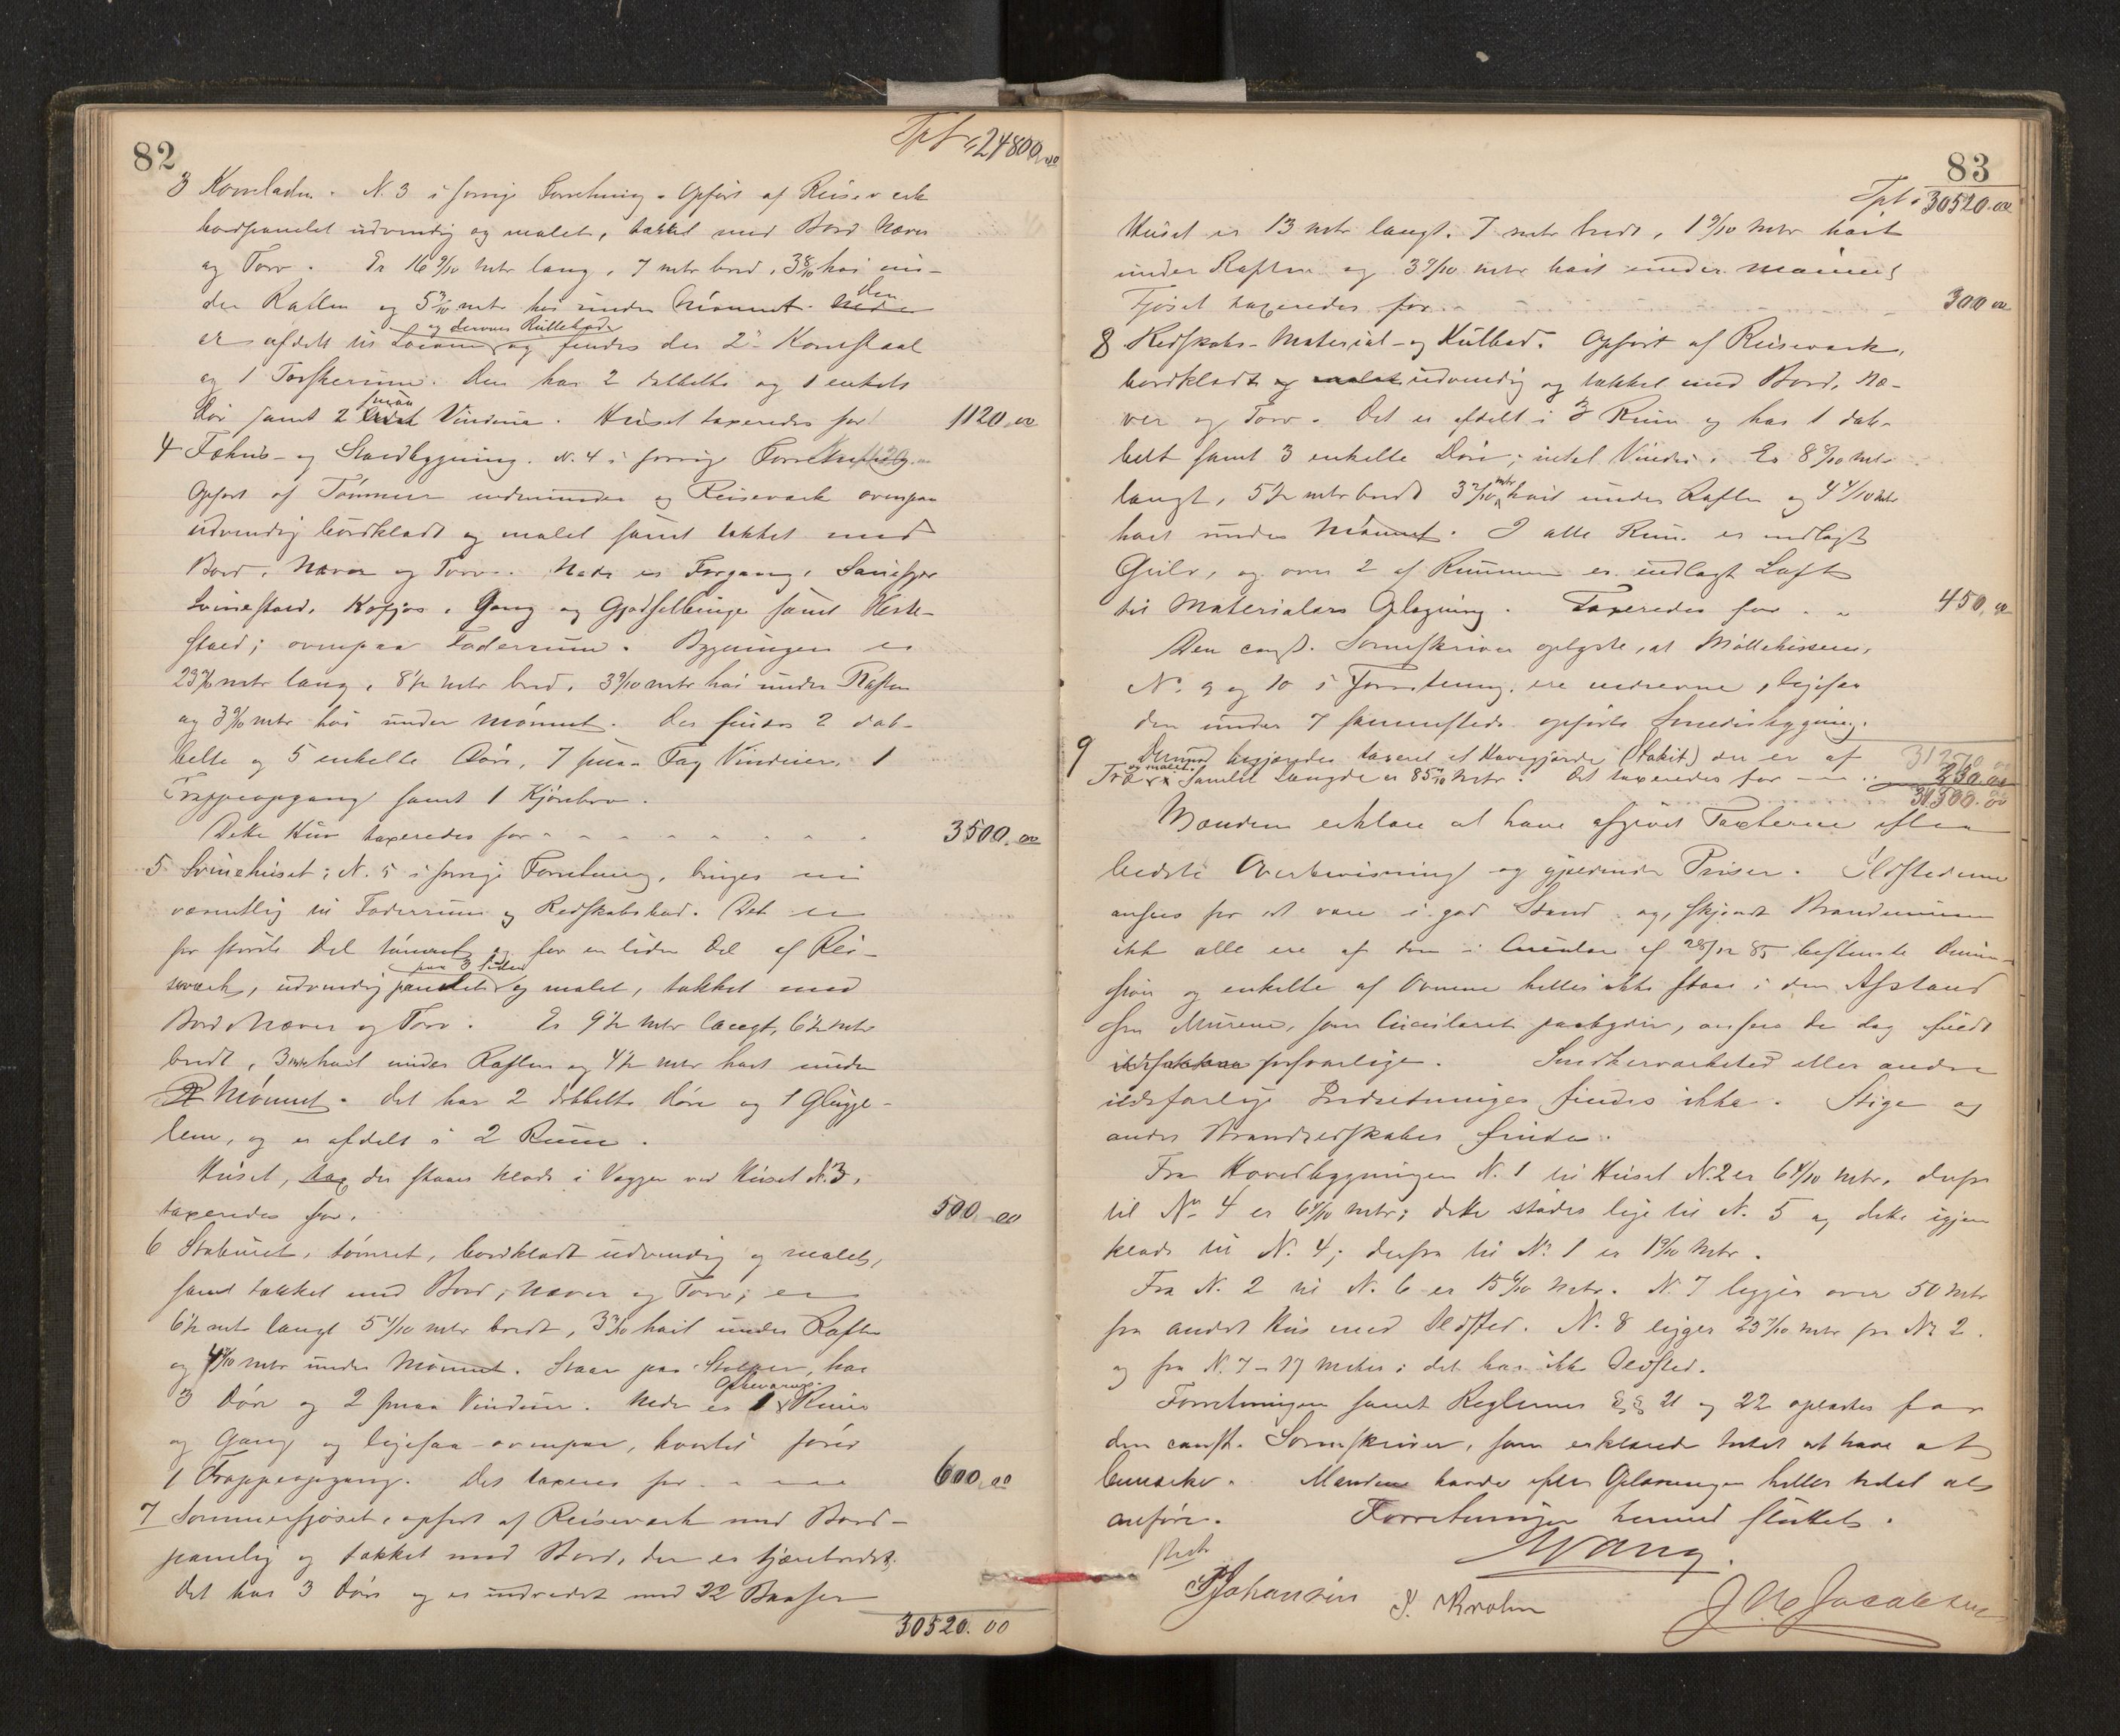 82
Tpt. 24800.00
3 Kornladen. N. 3 i forrige Forretning. Opført af Reisverk
bordpanelet udvendig og malet, tækket med Bord Næver
og Torv. Er 16 9/10 mtr lang, 7 mtr bred, 3 8/10 høi un-
der Raften og 5 mtr høi under Mønnet. Den
er afdelt til Loerum og dennes Rullebod og findes der 2 Kornstaal
og 1 Tærskerum. Den har 2 dobbelte og 1 enkelt
Dør samt 2 smaa Vinduer. Huset taxeredes for 1120.00
4 Fæhus- og Staldbygning. N. 4 i forrige Forretning.
Opført af Tømmer nedenunder og Reisverk ovenpaa
udvendig bordklædt og malet samt tækket med
Bord, Næver og Torv. Nede er Forgang, Sauefjøs
Svinestald, Kofjøs, Gang og Gjødselbinge samt Heste-
stald; ovenpaa Foderrum. Bygningen er
23 mtr lang, 8 1/2 mtr bred, 3 9/10 mtr høi under Raften
og 3 9/10 mtr høi under Mønnet. Der findes 2 dob-
belte og 5 enkelte Døre, 7 smaa Fag Vinduer, 1
Trappeopgang samt 1 Kjørebro.
Dette Hus taxeredes for 3500.00
5 Svinehuset; N. 5 i forrige Forretning, bruges nu
væsentlig til Foderrum og Redskabsbod. Det er
for største Del tømret og for en liden Del af Rei-
sværk, udvendig panelet paa 3 Sider og malet, tækket med
Bord Næver og Torv. Er 9 1/2 mtr langt, 6 1/2 mtr
bredt, 3 mtr høit under Raften og 4 1/2 mtr høit under
Mønnet. Det har 2 dobbelte Døre og 1 Glugge-
lem, og er afdelt i 2 Rum.
Huset, der staaer klods i Vægge ved Huset N. 3,
taxeredes for. 500.00
6 Staburet, tømret, bordklædt udvendig og malet,
samt tækket med Bord, Næver og Torv; er
6 1/2 mtr langt 5 1/10 mtr bredt, 3 høit under Raften
og 4 mtr under Mønnet. Staar paa Stolper, har
3 Døre og 2 smaa Vinduer. Nede er 1 Opbevarings Rum
og Gang og ligesaa ovenpaa, hvortil fører
1 Trappeopgang. Det taxeres for 600.00
7 Sommerfjøset, opført af Reisværk med Bord-
paneling og tækket med Bord, der er tjærebredt.
Det har 3 Døre og er indredet med 22 Baaser
30520.00
83
Tpt. 30520.00
Huset er 13 mtr langt. 7 mtr bredt, 1 9/10 mtr høit
under Raften og 3 9/10 mtr høit under Mønnet
Fjøset taxeredes for 300.00
8 Redskabs- Material- og Kulbod. Opført af Reisværk,
bordklædt udvendig og tækket med Bord, Næ-
ver og Torv. Det er afdelt i 3 Rum og har 1 dob-
belt samt 3 enkelte Døre; intet Vindu. Er 8 mtr
langt, 5 1/2 mtr bredt 3 mtr høit under Raften og 4 4/10 mtr
høit under Mønnet. I alle Rum er indlagt
Gulv, og over 2 af Rummene er indlagt Loft
til Materialers Oplagning. Taxeredes for 450.00
Den const. Sorenskriver oplyste, at Møllehusene,
No. 9 og 10 i Forretning, ere nedrevne, ligesaa
den under 7 sammesteds opførte Smedebygning.
9 Dernæst begjæredes taxeret et Havegjærde (Stakit) der er af 31270
Træ og malet. Samlet Længde er 85 mtr. Det taxeredes for 230.00
31500.00
Mændene erklære at have afgivet Taxterne efter
bedste Overbevisning og gjældende Priser. Ildstederne
ansees for at være i god Stand og, skjøndt Brandmurene
ikke alle ere af den i Circulær af 28/12 85 bestemte Dimen-
sion og enkelte af Ovnene heller ikke staar i den Afstand
fra Murene, som Circulæret paabyder, ansees de dog fuldt
forsvarlige. Snedkerværksted eller andre
ildsfarlige Indretninger findes ikke. Stige og
andre Brandredskaber findes.
Fra Hovedbygningen N. 1 til Huset N. 2 er 6 4/10 mtr, derfra
til No 4 er 6 mtr; dette stødes lige til N. 5 og dette igjen
klods til N. 4; derfra til No. 1 er 19 mtr.
Fra N. 2 til N. 6 er 15 mtr. N. 7 ligger over 50 mtr
fra andet Hus med Ildsted. N. 8 ligger 23 mtr fra No 2.
og fra N. 7 - 17 meter; det har ikke Ildsted.
Forretningen samt Reglernes §§ 21 og 22 oplæstes for
den const. Sorenskriver, som erklærede Intet at have at
bemærke. Mændene havde efter Oplæsningen heller intet at
anføre. Forretningen hermed sluttet.
Wang.
Johansen P. Krohn J M Jacobsen